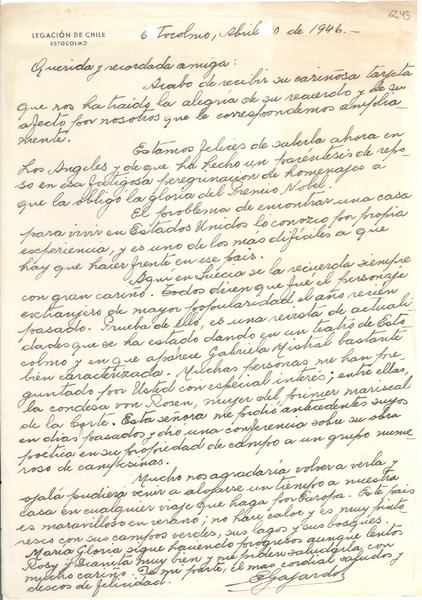 6243
LEGACIÓN DE CHILE
ESTOCOLMO
Estocolmo, Abril 10 de 1946.-
Querida y recordada amiga:
Acabo de recibir su cariñosa tarjeta
que nos ha traído la alegría de su recuerdo y de su
afecto por nosotros que le correspondemos amplia-
mente.
Estamos felices de saberla ahora en
Los Angeles y de que ha hecho un paréntesis de repo-
so en esa fatigosa peregrinacion de homenajes a
que la obligó la gloria del Premio Nobel.
El problema de encontrar una casa
para vivir en Estados Unidos lo conozco por propia
experiencia, y es uno de los más difíciles a que
hay que hacer frente en ese país.
Aquí en Suecia se la recuerda siempre
con gran cariño. Todos dicen que fué el personaje
extranjero de mayor popularidad el año recien
pasado. Prueba de ello, es una revista de actuali-
dades que se ha estado dando en un teatro de Esto-
colmo y en que aparece Gabriela Mistral bastante
bien caracterizada. Muchas personas me han pre-
guntado por Usted con especial interés; entre ellas,
la condesa von Rosen, mujer del primer mariscal
de la Corte. Esta señora me pidió antecedentes suyos
en días pasados y dió una conferencia sobre su obra
poética en su propiedad de campo a un grupo nume-
roso de campesinas.
Mucho nos agradaría volver a verla y
ojalá pudiera venir a alojarse un tiempo a nuestra
casa en cualquier viaje que haga por Europa. Este país
es maravilloso en verano; no hace calor y es muy pinto-
resco con sus campos verdes, sus lagos y sus bosques.
María Gloria sigue haciendo progresos aunque lentos
Rosy y Juanita muy bien y me piden saludarla con
mucho cariño. De mi parte, el mas cordial saludos y
deseos de felicidad.
E Gajardo